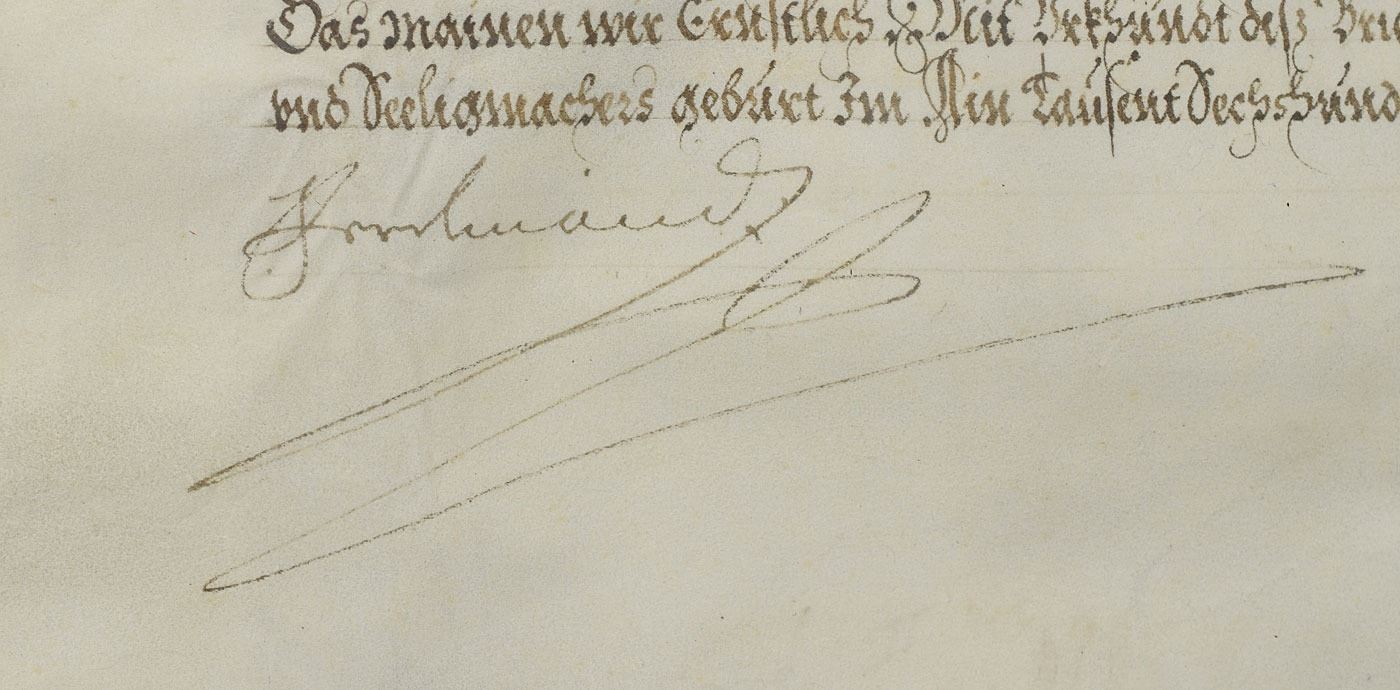 Das mainen wir Ernstlich Mit Vrkhundt diß Brie
vnd Seeligmachers geburt Im Ain Tausent Sechshund
Ferdinand